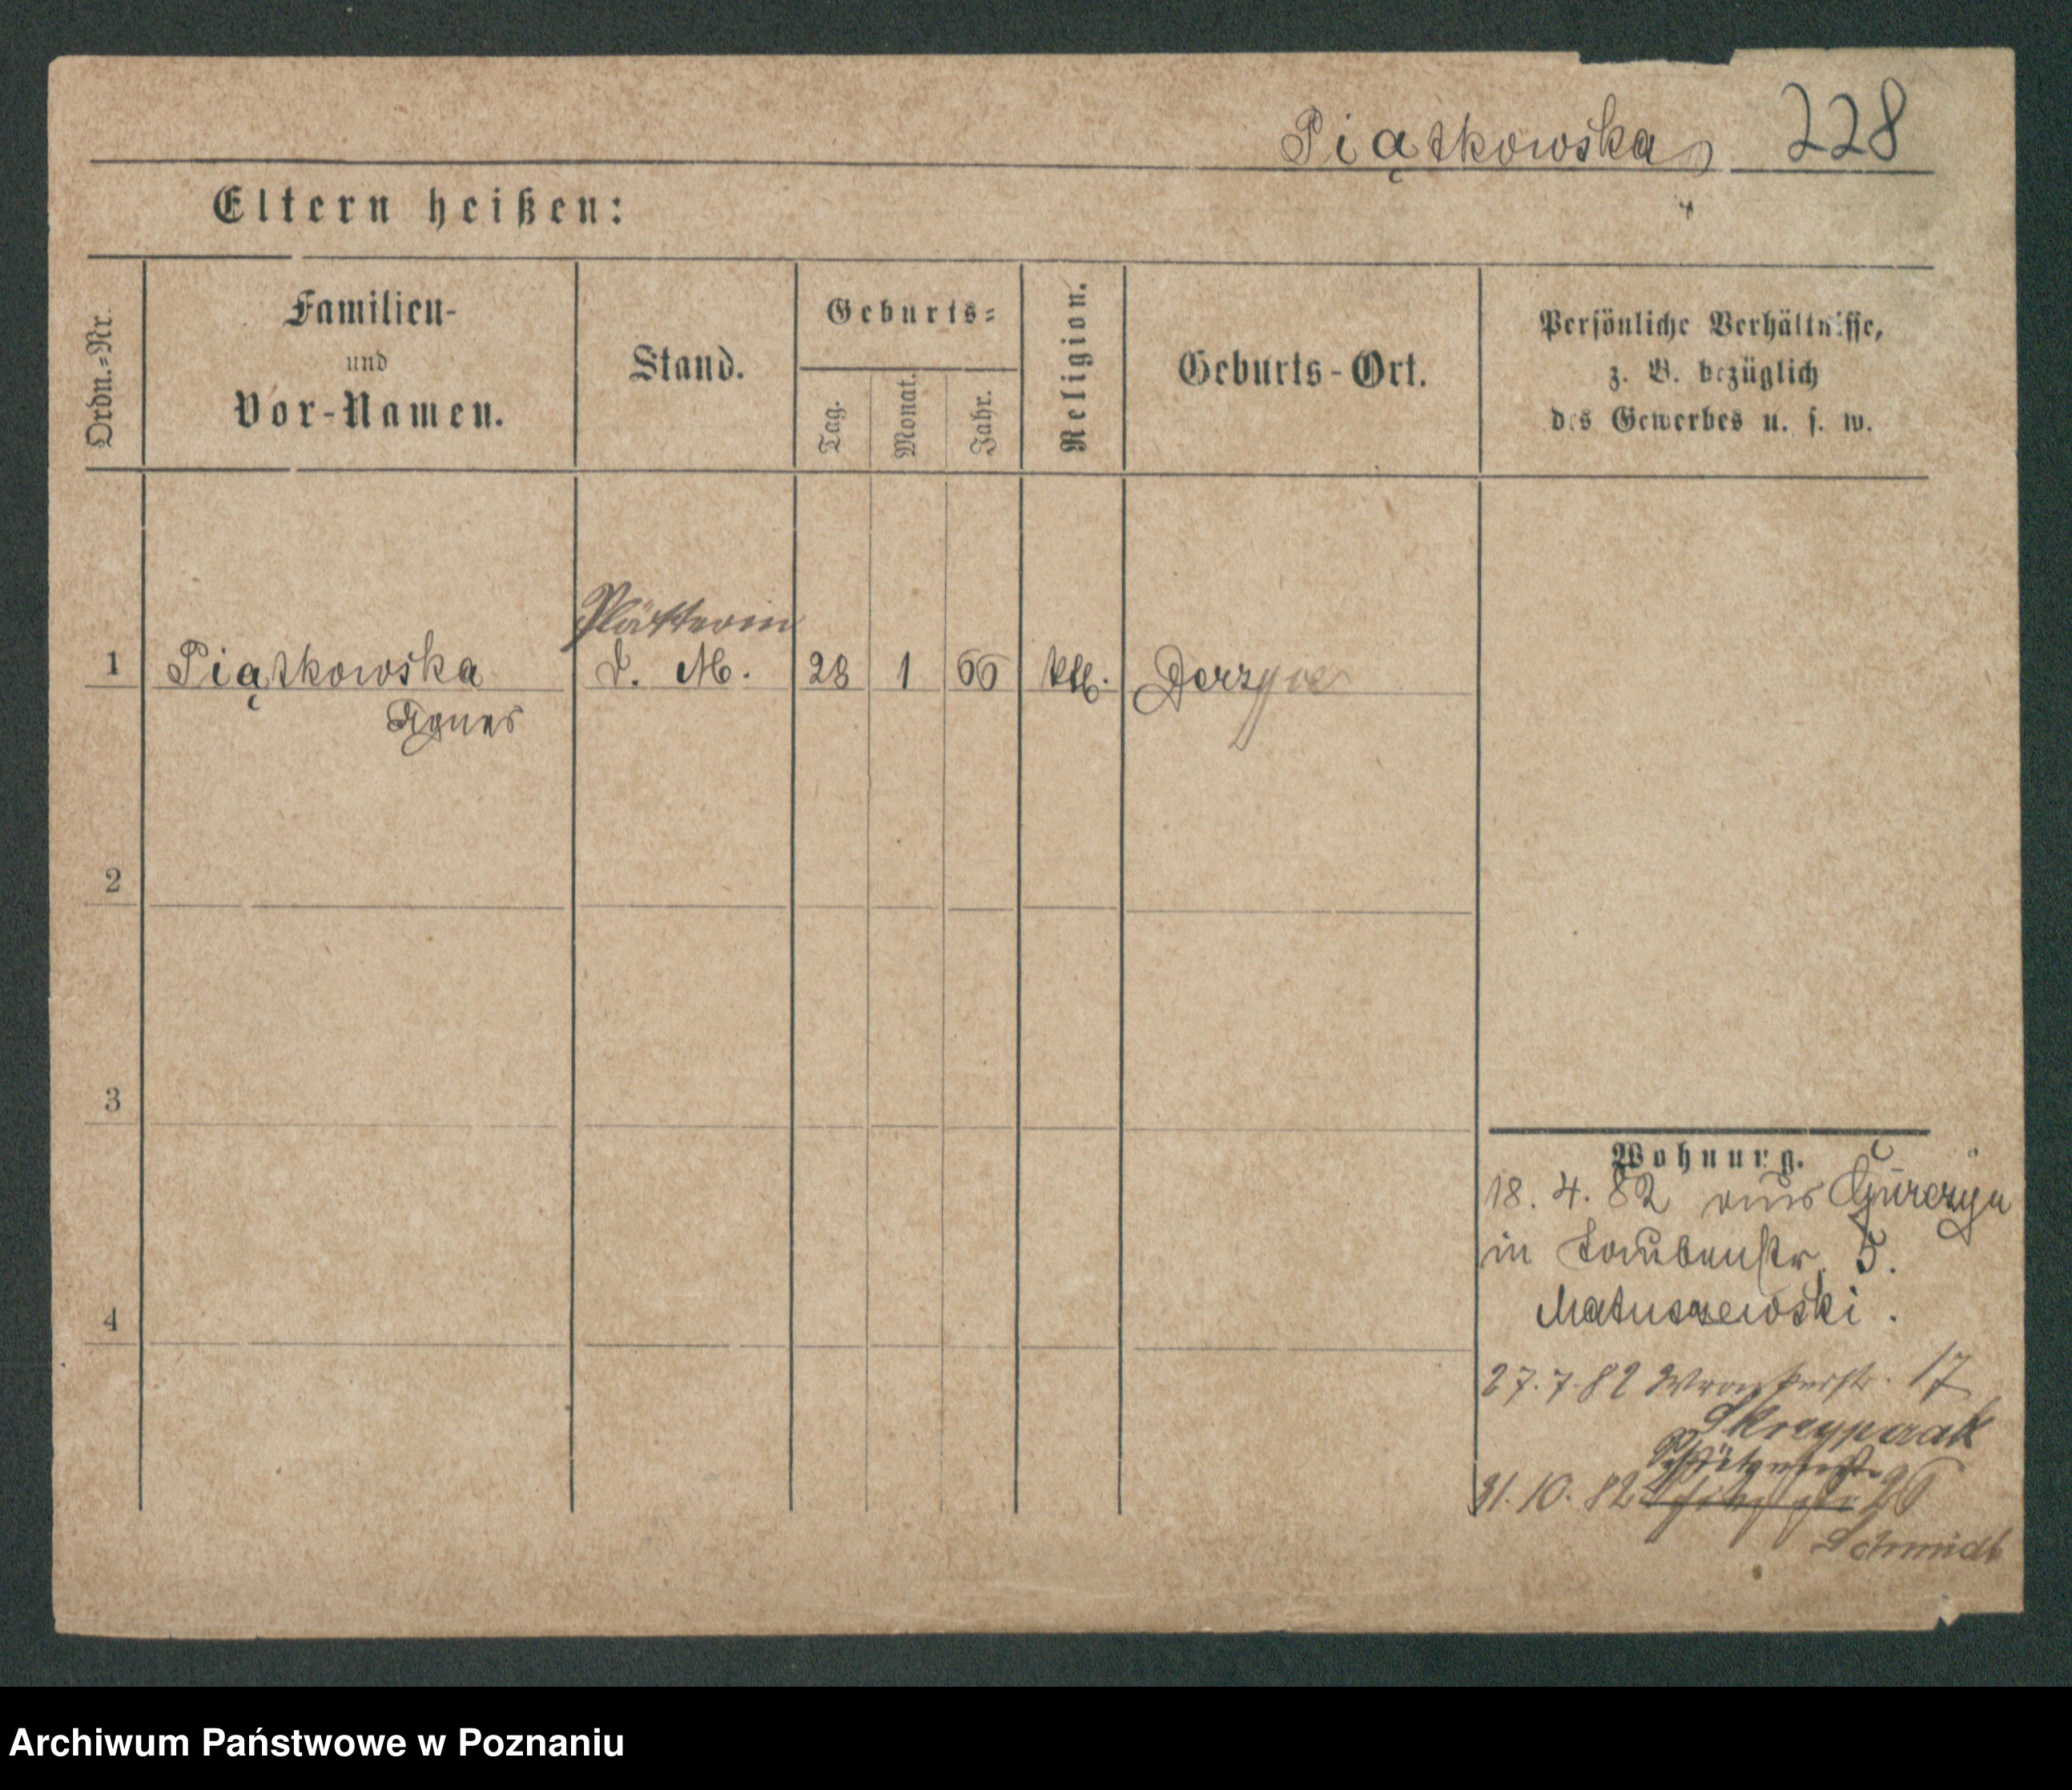 Piątkowska 228
Eltern heißen:
Ordn.-Nr.
Familien-
und
Vor-Namen.
Stand.
Geburts-
Tag.
Monat.
Jahr.
Religion.
Geburts-Ort.
Persönliche Verhältnisse,
z. B. bezüglich
des Gewerbes u. s. w.
Plätterin
1 Piątkowska D. M. 28 1 66 kth.
Agnes
2
3
4
Wohnung.
18. 4. 82 aus Gurczyn
in Taubenstr. 5.
Matuszewski.
27. 7. 82 Wronkerstr. 17
Skrzypczak
31. 10. 82 26
Schmidt
Archiwum Państwowe w Poznaniu